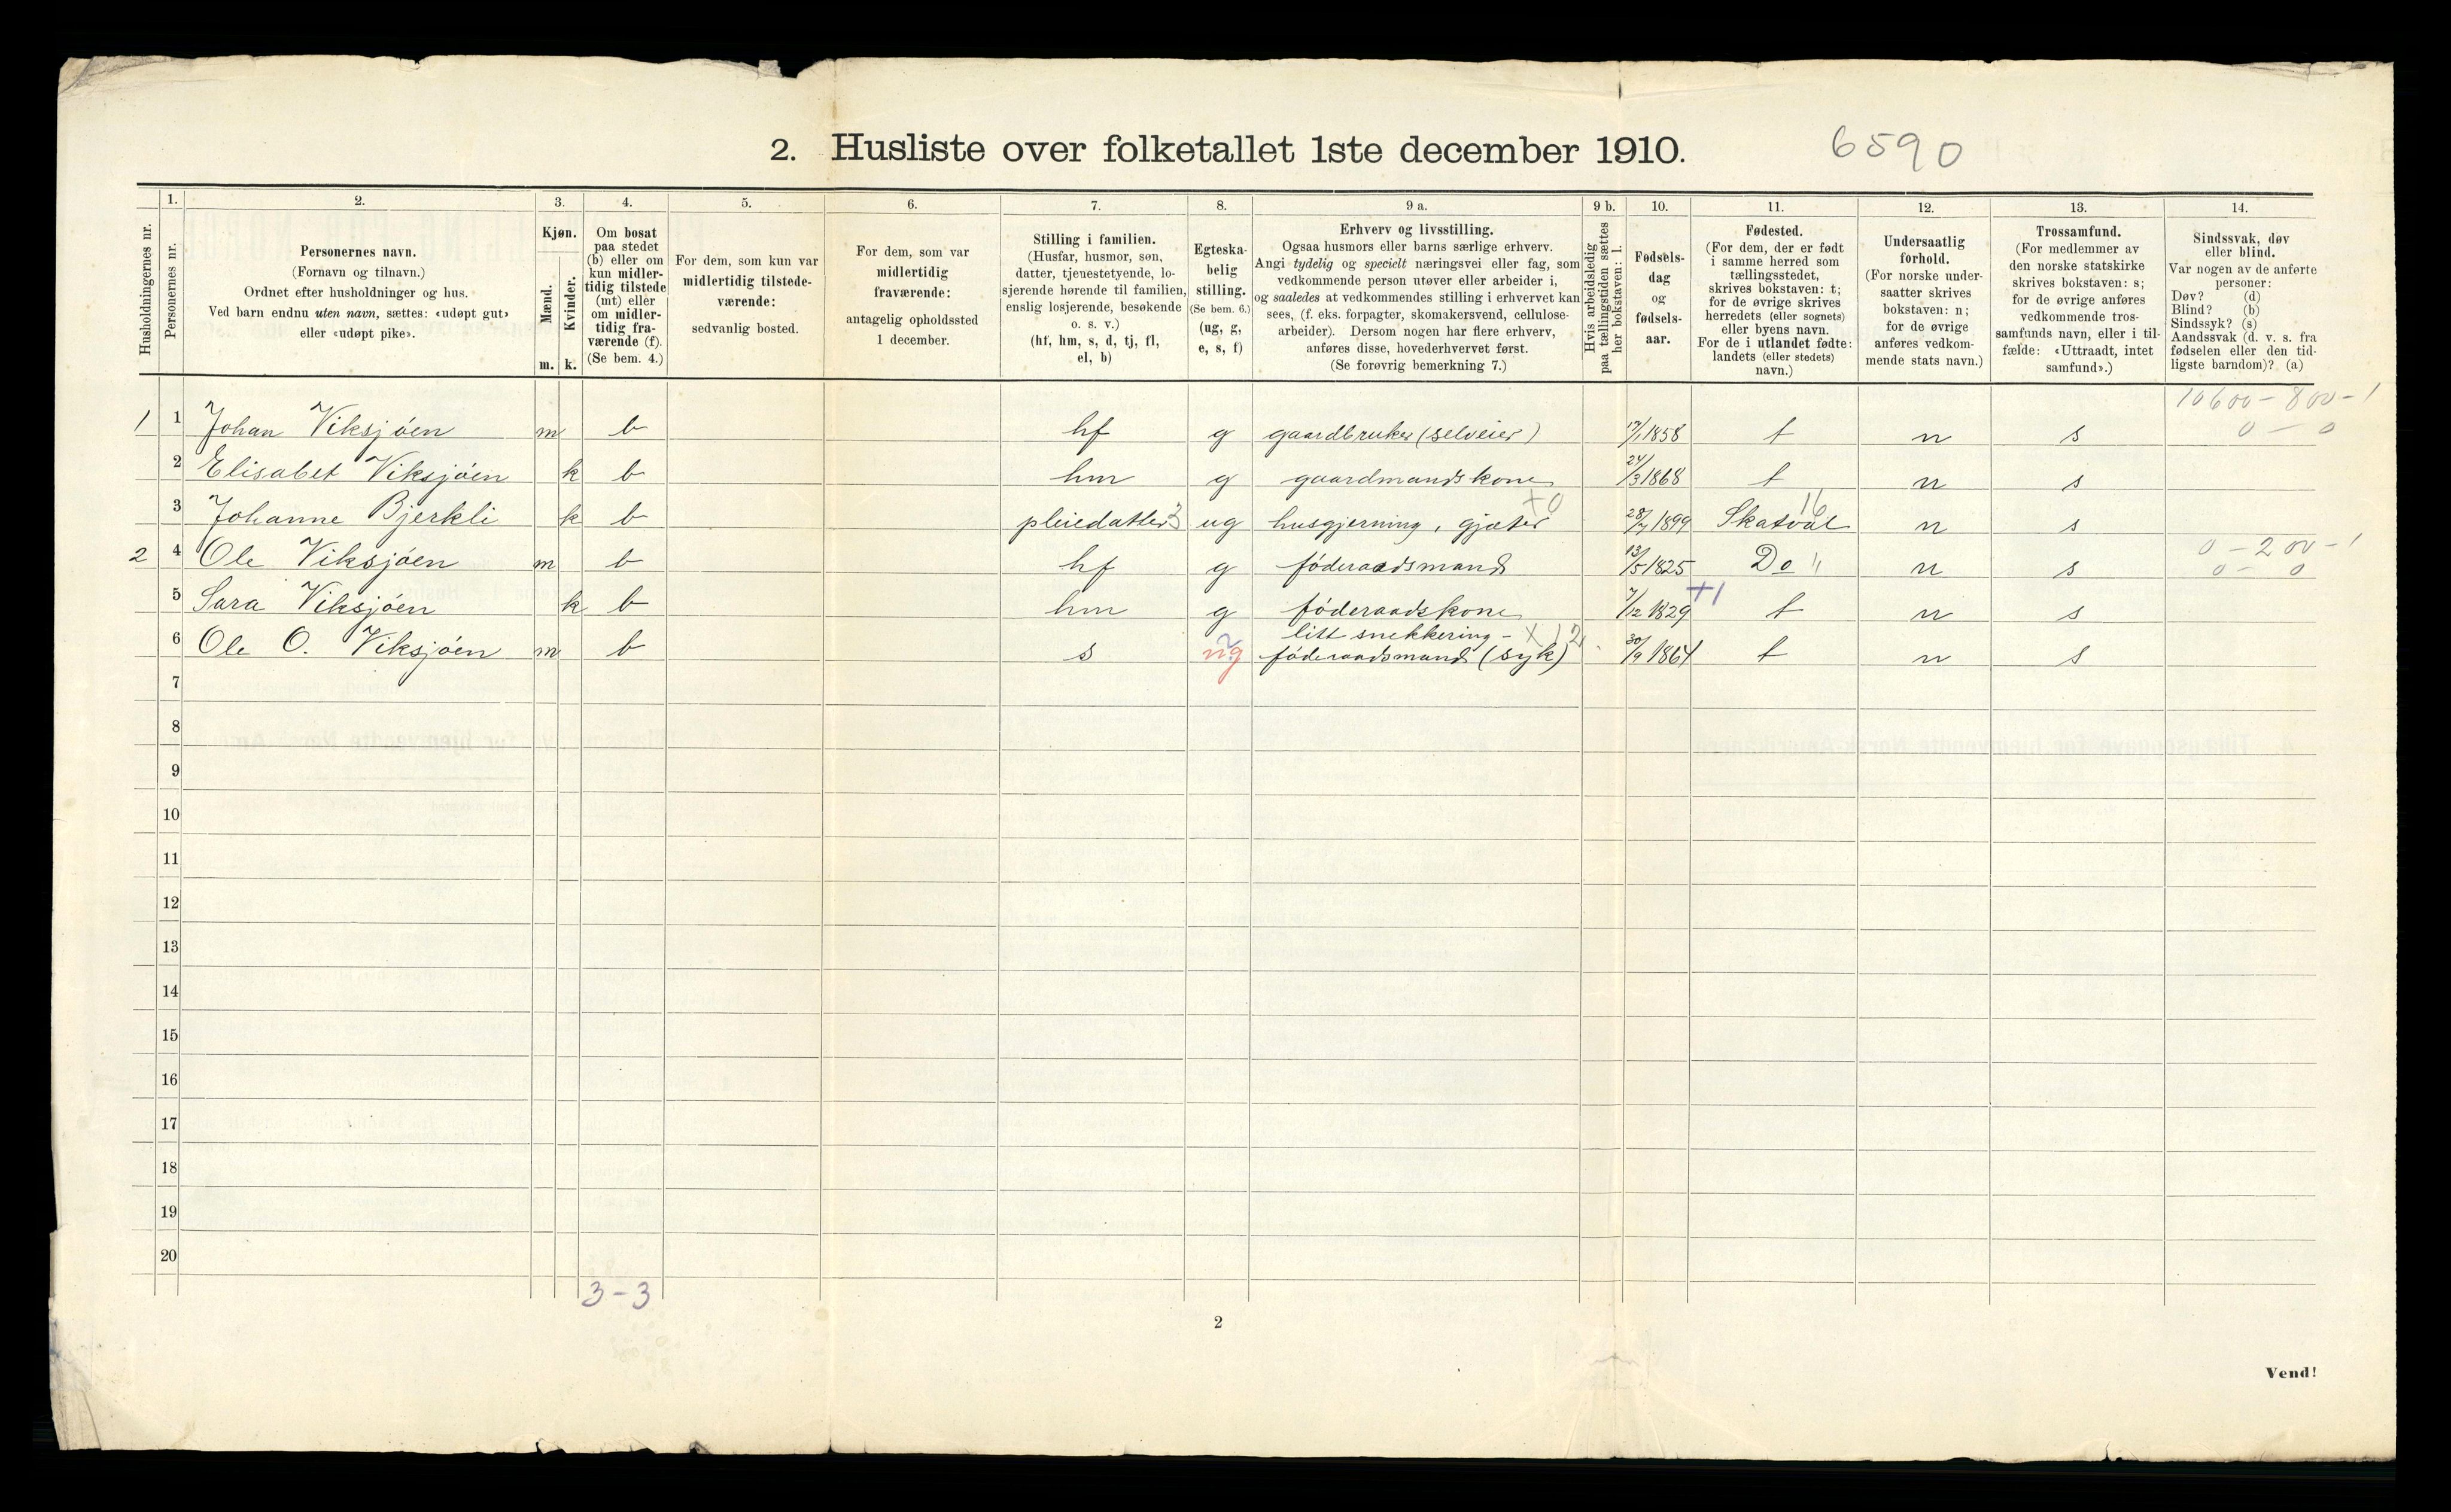 2. Husliste over folketallet 1ste december 1910. 6590
Husholdningernes nr.
1. Personernes nr.
2. Personernes navn.
(Fornavn og tilnavn.)
Ordnet efter husholdninger og hus.
Ved barn endnu uten navn, sættes: «udøpt gut»
eller «udøpt pike».
3. Kjøn.
Mænd. m.
Kvinder. k.
4. Om bosat
paa stedet
(b) eller om
kun midler-
tidig tilstede
(mt) eller
om midler-
tidig fra-
værende (f).
(Se bem. 4.)
5. For dem, som kun var
midlertidig tilstede-
værende:
sedvanlig bosted.
6. For dem, som var
midlertidig
fraværende:
antagelig opholdssted
1 december.
7. Stilling i familien.
(Husfar, husmor, søn,
datter, tjenestetyende, lo-
sjerende hørende til familien,
enslig losjerende, besøkende
o. s. v.)
(hf, hm, s, d, tj, fl,
el, b)
8. Egteska-
belig
stilling.
(Se bem. 6.)
(ug, g,
e, s, f)
9 a. Erhverv og livsstilling.
Ogsaa husmors eller barns særlige erhverv.
Angi tydelig og specielt næringsvei eller fag, som
vedkommende person utøver eller arbeider i,
og saaledes at vedkommendes stilling i erhvervet kan
sees, (f. eks. forpagter, skomakersvend, cellulose-
arbeider). Dersom nogen har flere erhverv,
anføres disse, hovederhvervet først.
(Se forøvrig bemerkning 7.)
9 b. Hvis arbeidsledig
paa tællingstiden sættes
her bokstaven: l.
10. Fødsels-
dag
og
fødsels-
aar.
11. Fødested.
(For dem, der er født
i samme herred som
tællingsstedet,
skrives bokstaven: t;
for de øvrige skrives
herredets (eller sognets)
eller byens navn.
For de i utlandet fødte:
landets (eller stedets)
navn.)
12. Undersaatlig
forhold.
(For norske under-
saatter skrives
bokstaven: n;
for de øvrige
anføres vedkom-
mende stats navn.)
13. Trossamfund.
(For medlemmer av
den norske statskirke
skrives bokstaven: s;
for de øvrige anføres
vedkommende tros-
samfunds navn, eller i til-
fælde: «Uttraadt, intet
samfund».)
14. Sindssvak, døv
eller blind.
Var nogen av de anførte
personer:
Døv? (d)
Blind? (b)
Sindssyk? (s)
Aandssvak (d. v. s. fra
fødselen eller den tid-
ligste barndom)? (a)
10600 - 800 - 1
1 1 Johan Viksjöen m b hf g gaardbruker (selveier) 17/1 1858 t n s 0 - 0
2 Elisabet Viksjöen k b hm g gaardmandskone 24/3 1868 t n s
x0 16
3 Johanne Bjerkli k b pleiedatter 3 ug husgjerning, gjæter 28/7 1899 Skatval n s
0 - 200 - 1
2 4 Ole Viksjöen m b hf g föderaadsmand 13/5 1825 Do " n s 0 - 0
+1
5 Sara Viksjöen k b hm g föderaadskone 7/12 1829 t n s
litt snekkering - x 12
6 Ole O. Viksjöen m b s ug 2 föderaadsmand (syk) 30/9 1864 t n s
7
8
9
10
11
12
13
14
15
16
17
18
19
20
3 - 3
2
Vend!